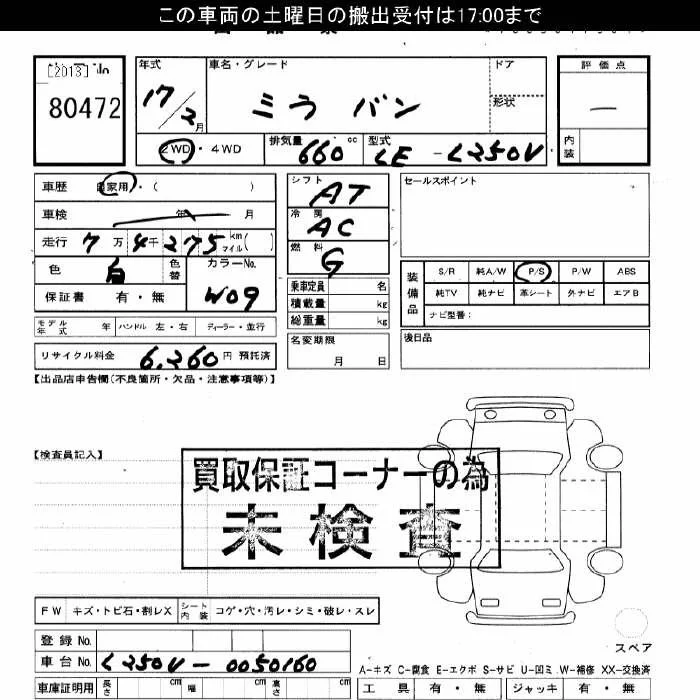 この車両の土曜日の搬出受付は17:00まで
[2013] No
80472
年式 車名・グレード ドア 評価点
17/2月 ミラ バン 形状 —
2WD・4WD 排気量 660 cc 型式 LE-L250V 内装
車歴 自家用・( )
車検 年 月
走行 7万4千275 km マイル( )
色 白 色替 カラーNo. W09
保証書 有・無
シフト AT
冷房 AC
燃料 G
乗車定員 名
積載量 kg
総重量 kg
セールスポイント
装備品 S/R 純A/W P/S P/W ABS
純TV 純ナビ 革シート 外ナビ エアB
ナビ型番:
モデル年式 年 ハンドル 左・右 ディーラー・並行
名変期限 月 日
後日品
リサイクル料金 6,260 円 預託済
【出品店申告欄(不良箇所・欠品・注意事項等)】
【検査員記入】
買取保証コーナーの為
未検査
FW キズ・トビ石・割レX シート内装 コゲ・穴・汚レ・シミ・破レ・スレ
スペア
登録 No.
車台 No. L250V-0050160
A-キズ C-腐食 E-エクボ S-サビ U-凹ミ W-補修 XX-交換済
車庫証明用 長さ cm 幅 cm 高さ cm 工具 有・無 ジャッキ 有・無